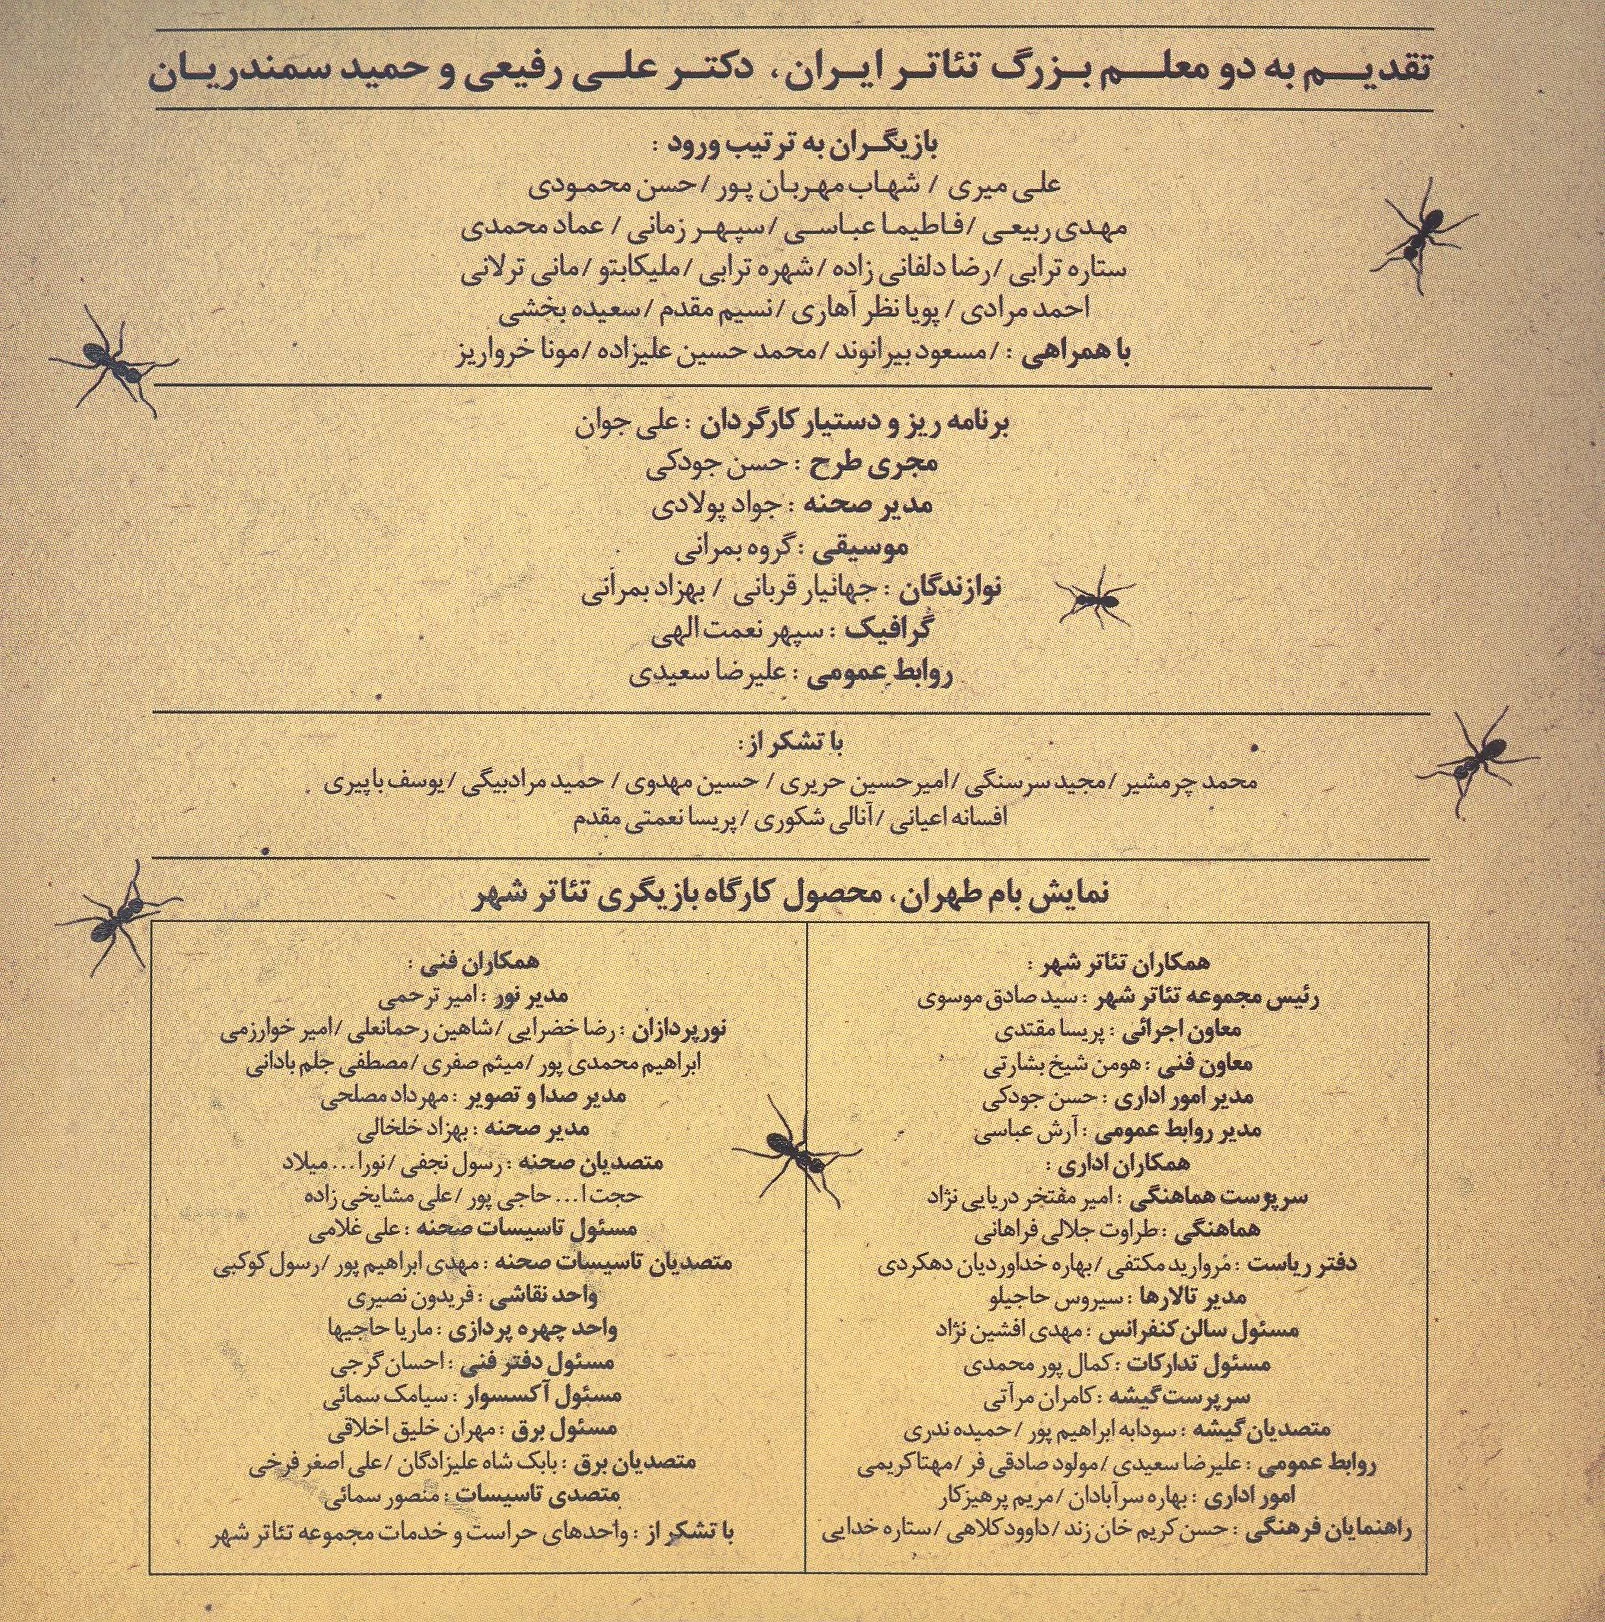 تقدیم به دو معلم بزرگ تئاتر ایران، دکتر علی رفیعی و حمید سمندریان
بازیگران به ترتیب ورود :
علی میری / شهاب مهربان پور / حسن محمودی
مهدی ربیعی / فاطیما عباسی / سپهر زمانی / عماد محمدی
ستاره ترابی / رضا دلفانی زاده / شهره ترابی / ملیکابتو / مانی ترلانی
احمد مرادی / پویا نظر آهاری / نسیم مقدم / سعیده بخشی
با همراهی : / مسعود بیرانوند / محمد حسین علیزاده / مونا خرواریز
برنامه ریز و دستیار کارگردان : علی جوان
مجری طرح : حسن جودکی
مدیر صحنه : جواد پولادی
موسیقی : گروه بمرانی
نوازندگان : جهانیار قربانی / بهزاد بمرانی
گرافیک : سپهر نعمت الهی
روابط عمومی : علیرضا سعیدی
با تشکر از :
محمد چرمشیر / مجید سرسنگی / امیرحسین حریری / حسین مهدوی / حمید مرادبیگی / یوسف باپیری
افسانه اعیانی / آنالی شکوری / پریسا نعمتی مقدم
نمایش بام طهران، محصول کارگاه بازیگری تئاتر شهر
همکاران تئاتر شهر :
رئیس مجموعه تئاتر شهر : سید صادق موسوی
معاون اجرائی : پریسا مقتدی
معاون فنی : هومن شیخ بشارتی
مدیر امور اداری : حسن جودکی
مدیر روابط عمومی : آرش عباسی
همکاران اداری :
سرپرست هماهنگی : امیر مفتخر دریایی نژاد
هماهنگی : طراوت جلالی فراهانی
دفتر ریاست : مروارید مکتفی / بهاره خداوردیان دهکردی
مدیر تالارها : سیروس حاجیلو
مسئول سالن کنفرانس : مهدی افشین نژاد
مسئول تدارکات : کمال پور محمدی
سرپرست گیشه : کامران مرآتی
متصدیان گیشه : سودابه ابراهیم پور / حمیده ندری
روابط عمومی : علیرضا سعیدی / مولود صادقی فر / مهتا کریمی
امور اداری : بهاره سرآبادان / مریم پرهیزکار
راهنمایان فرهنگی : حسن کریم خان زند / داوود کلاهی / ستاره خدایی
همکاران فنی :
مدیر نور : امیر ترحمی
نورپردازان : رضا خضرایی / شاهین رحمانعلی / امیر خوارزمی
ابراهیم محمدی پور / میثم صفری / مصطفی جلم بادانی
مدیر صدا و تصویر : مهرداد مصلحی
مدیر صحنه : بهزاد خلخالی
متصدیان صحنه : رسول نجفی / نورا... میلاد
حجت ا... حاجی پور / علی مشایخی زاده
مسئول تاسیسات صحنه : علی غلامی
متصدیان تاسیسات صحنه : مهدی ابراهیم پور / رسول کوکبی
واحد نقاشی : فریدون نصیری
واحد چهره پردازی : ماریا حاجیها
مسئول دفتر فنی : احسان گرجی
مسئول آکسسوار : سیامک سمائی
مسئول برق : مهران خلیق اخلاقی
متصدیان برق : بابک شاه علیزادگان / علی اصغر فرخی
متصدی تاسیسات : منصور سمائی
با تشکر از : واحدهای حراست و خدمات مجموعه تئاتر شهر